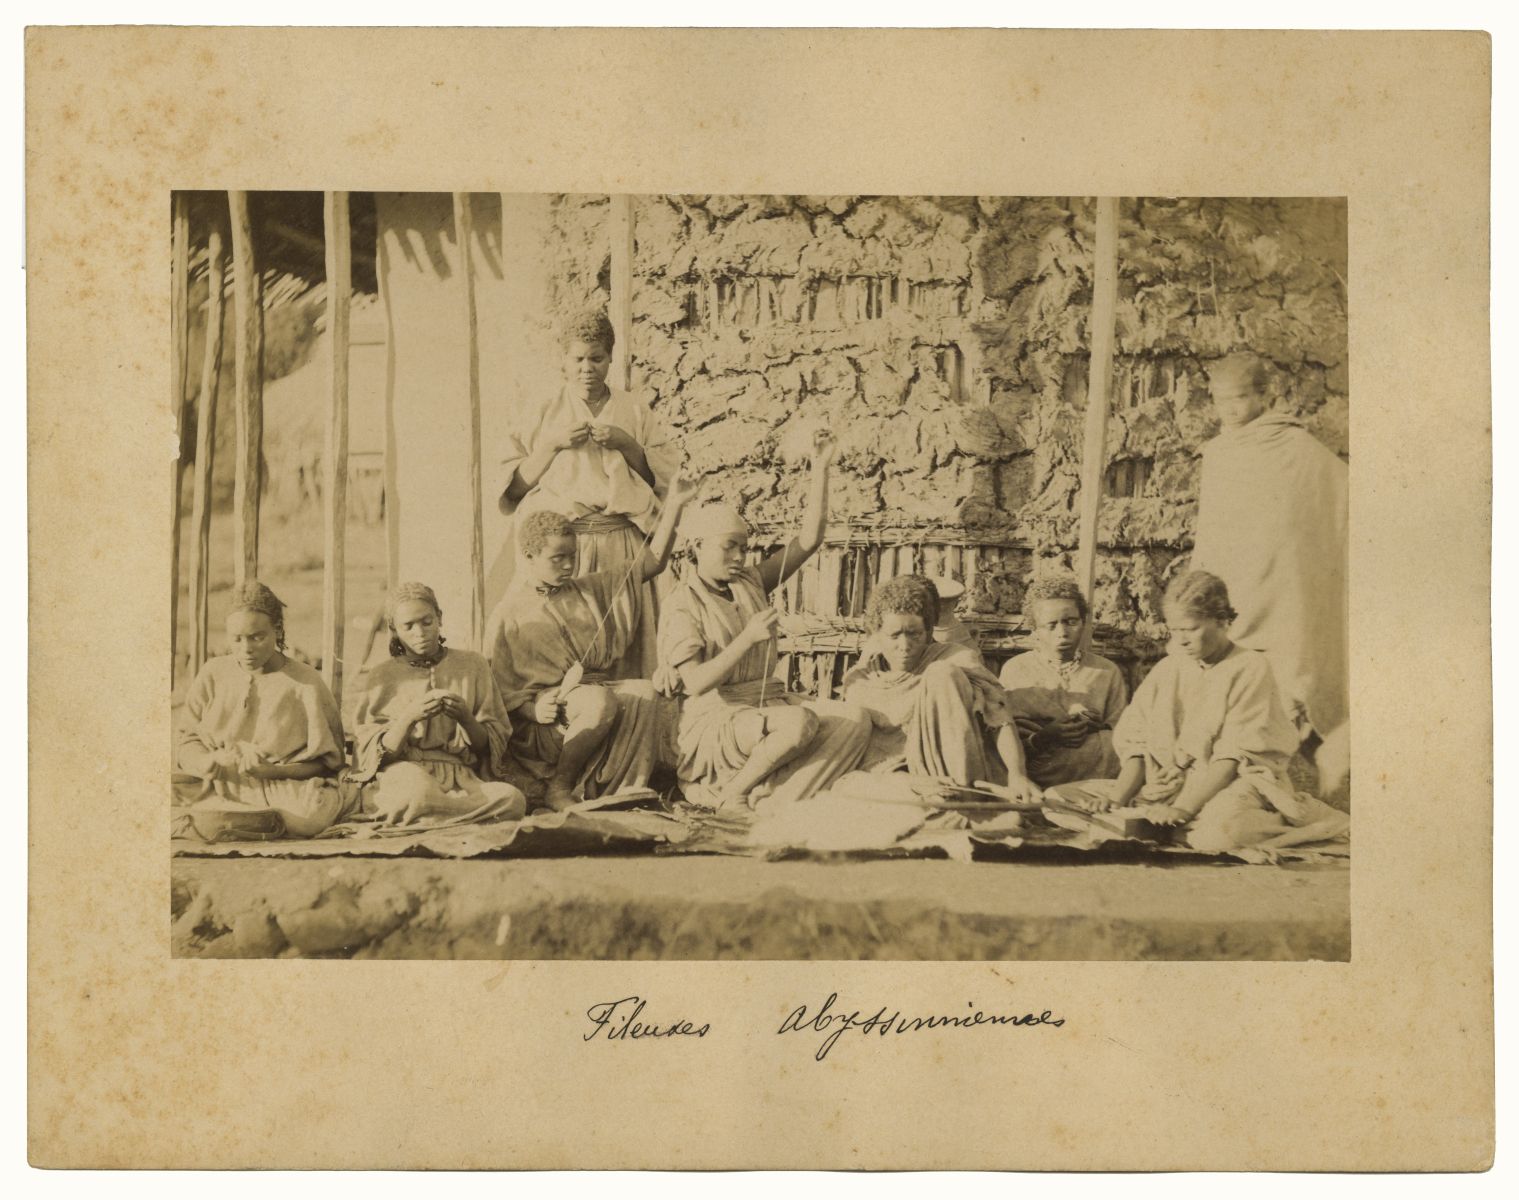 Fileuses abyssinniennes